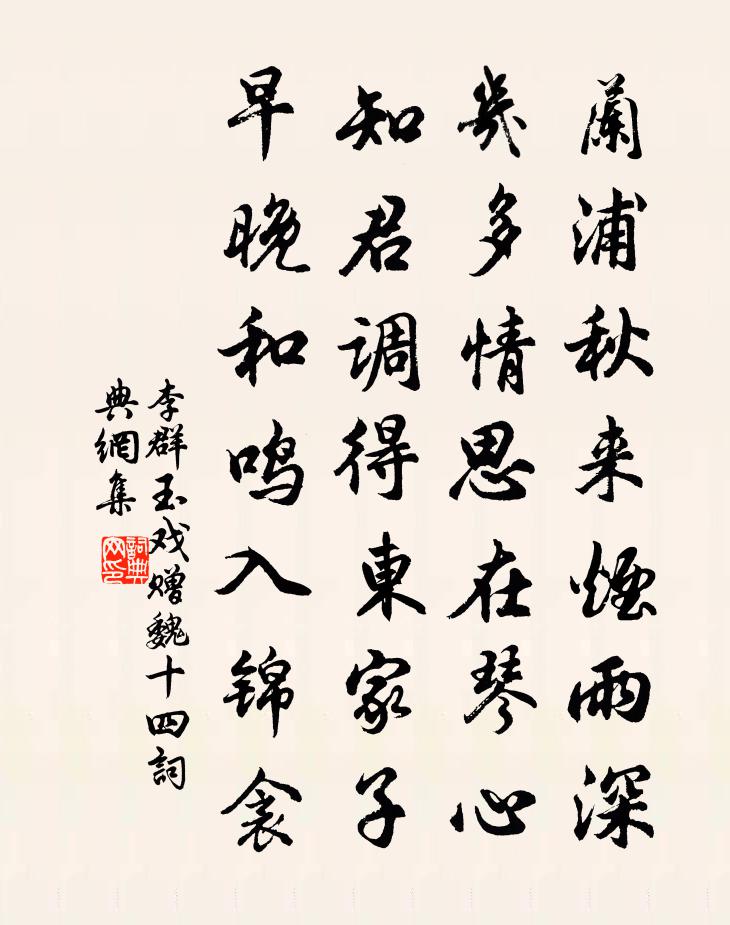 蘭浦秋来煙雨深
幾多情思在琴心
知君调得東家子
早晚和鸣入锦衾
李群玉戏赠魏十四詞
典網集
詞典
网印